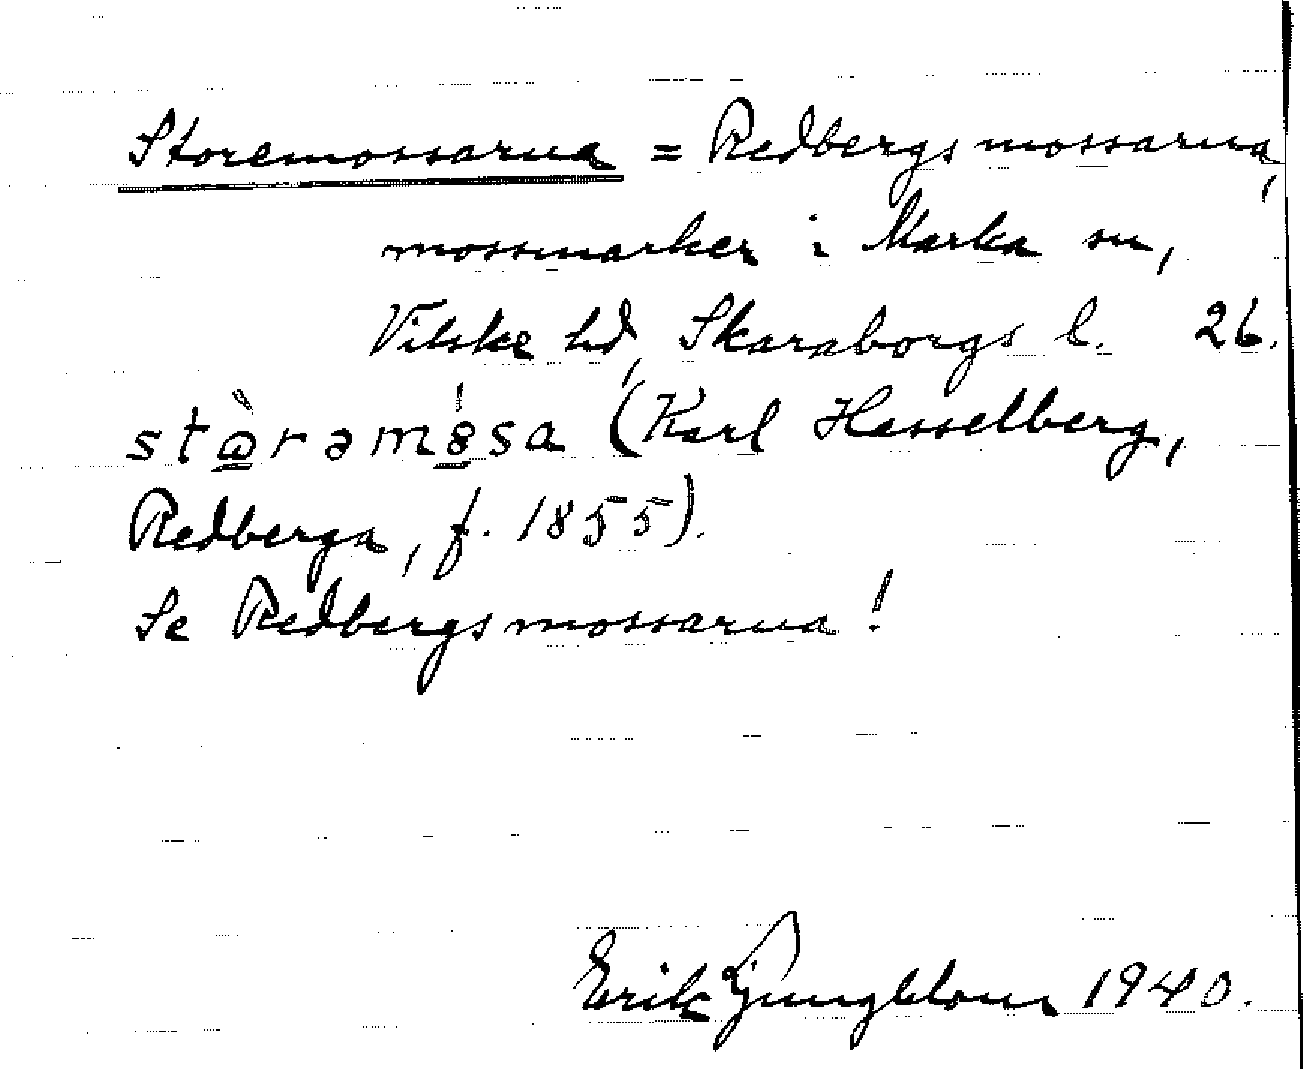 Storemossarna = Redbergsmossarna,
mossmarker i Marka sn,
Vilske hd, Skaraborgs l. 26.
stὼrəmꞝ́sa (Karl Hasselberg,
Redberga, f. 1855).
Se Redbergsmossarna!
Erik Ljungblom 1940.